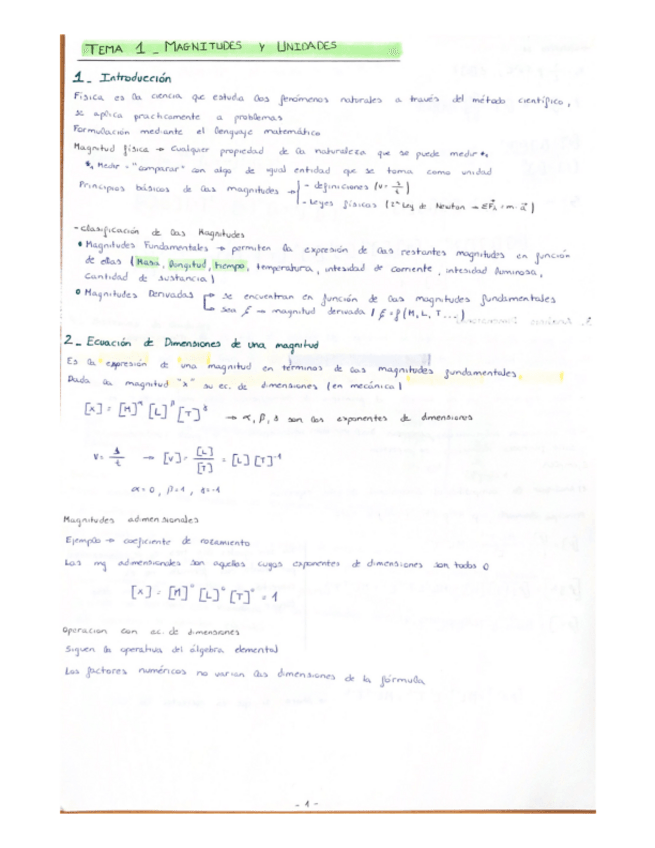 TEMA 1 _ MAGNITUDES Y UNIDADES
1_ Introducción
Física es la ciencia que estudia los fenómenos naturales a través del método científico,
se aplica practicamente a problemas
Formulación mediante el lenguaje matemático
Magnitud física → cualquier propiedad de la naturaleza que se puede medir *₁
*₁ Medir = "comparar" con algo de igual entidad que se toma como unidad
Principios básicos de las magnitudes → - definiciones (v = s/t)
- Leyes físicas (2ª Ley de Newton → ΣF = m · a)
- Clasificación de las Magnitudes
• Magnitudes Fundamentales → permiten la expresión de las restantes magnitudes en función
de ellas (Masa, longitud, tiempo, temperatura, intesidad de corriente, intesidad luminosa,
cantidad de sustancia)
• Magnitudes Derivadas → se encuentran en función de las magnitudes fundamentales
→ sea f → magnitud derivada / f = f (M, L, T ...)
2_ Ecuación de Dimensiones de una magnitud
Es la expresión de una magnitud en términos de las magnitudes fundamentales
Dada la magnitud "x" su ec. de dimensiones (en mecánica)
[X] = [M]^α [L]^β [T]^γ → α, β, γ son los exponentes de dimensiones
v = s/t → [v] = [L]/[T] = [L] [T]⁻¹
α = 0, β = 1, γ = -1
Magnitudes adimensionales
Ejemplo → coeficiente de rozamiento
Las mg adimensionales son aquellas cuyos exponentes de dimensiones son todos 0
[X] = [M]⁰ [L]⁰ [T]⁰ = 1
Operacion con ec. de dimensiones
Siguen la operativa del álgebra elemental
Los factores numéricos no varian las dimensiones de la fórmula
- 1 -